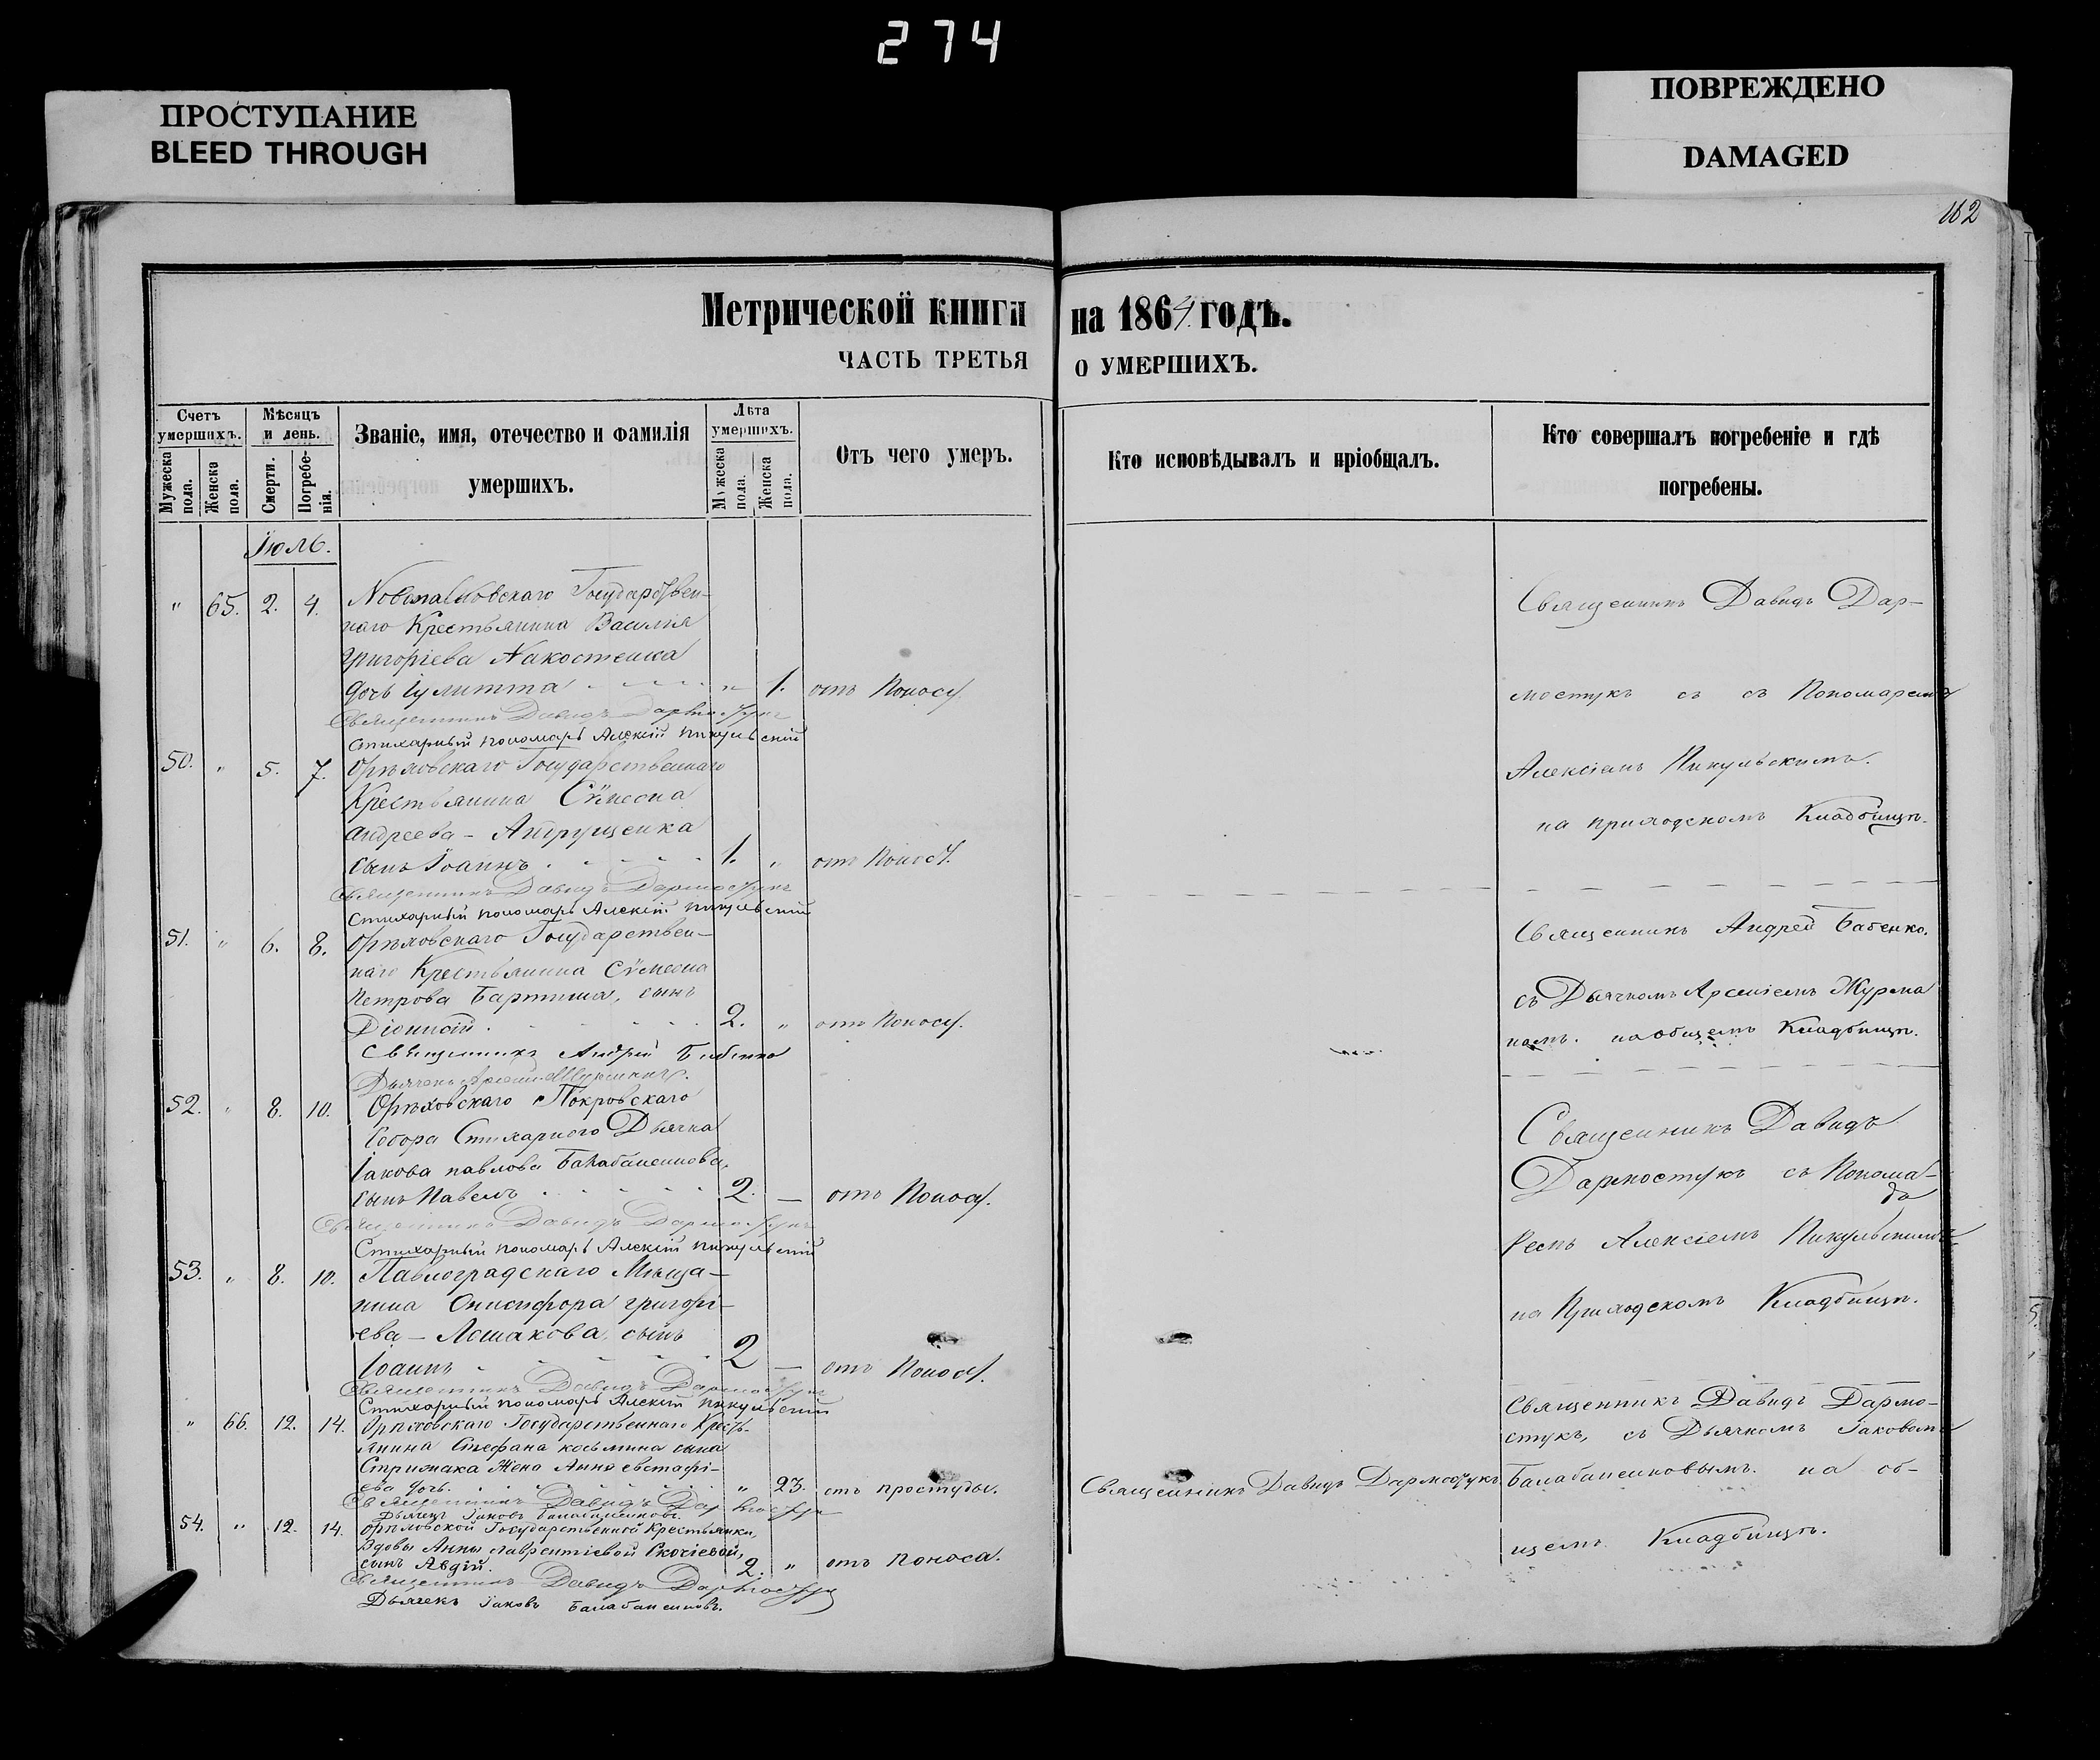 274
ПРОСТУПАНИЕ
BLEED THROUGH
ПОВРЕЖДЕНО
DAMAGED
162
Метрической книги на 1864 годъ.
ЧАСТЬ ТРЕТЬЯ О УМЕРШИХЪ.
Счетъ умершихъ.
Мужеска пола.
Женска пола.
Мѣсяцъ и день.
Смерти.
Погребенія.
Званіе, имя, отечество и фамилія умершихъ.
Лѣта умершихъ.
Мужеска пола.
Женска пола.
Отъ чего умеръ.
Кто исповѣдывалъ и пріобщалъ.
Кто совершалъ погребеніе и гдѣ погребены.
Іюль.
" 65. 2. 4. Государствен-
наго Крестьянина Василія
григоріева
дочь Іулитта " 1. отъ Поносу.
Священникъ Давидъ Дармостукъ
Стихарный пономарь Алексій Пикульскій
50. " 5. 7. Орѣховскаго Государственнаго
Крестьянина Сѷмеона
андреева - Андрущенка
сынъ Іоаннъ 1. " отъ Поносу.
Священникъ Давидъ Дармостукъ
Стихарный пономарь Алексій Пикульскій
51. " 6. 8. Орѣховскаго Государствен-
наго Крестьянина Сѷмеона
Петрова сынъ
Діонисій 2. " отъ Поносу.
Священникъ Андрей Бабенко
Дьячекъ Арсеній
52. " 8. 10. Орѣховскаго Покровскаго
Собора Стихарного Дьячка
Іакова павлова Балабаненкова,
сынъ Павелъ 2. — отъ Поносу.
Священникъ Давидъ Дармостукъ
Стихарный пономарь Алексій Пикульскій
53. " 8. 10. Павлоградскаго Мѣща-
нина Онисифора григорі-
ева - Лошакова, сынъ
Іоаннъ 2 — отъ Поносу.
Священникъ Давидъ Дармостукъ
Стихарный пономарь Алексій Пикульскій
" 66. 12. 14. Орѣховскаго Государственнаго Кресть-
янина Стефана косьмина сына
Стрижака Жена Анна евстафі-
ева дочь. " 23. отъ простуды.
Священникъ Давидъ Дармостукъ
Дьячекъ Іаковъ Балабаненковъ.
54. " 12. 14. Орѣховской Государственной Крестьянки,
Вдовы Анны лаврентіевой
сынъ Авдій. 2. " отъ поноса.
Священникъ Давидъ Дармостукъ
Дьячекъ Іаковъ Балабаненковъ.
Священникъ Давидъ Дармостукъ
Священникъ Давидъ Дар-
мостукъ съ Пономаремъ
Алексіемъ Пикульскимъ.
на приходскомъ Кладбищѣ.
Священникъ Андрей Бабенко.
съ Дьячкомъ Арсеніемъ
на общемъ Кладбищѣ.
Священникъ Давидъ
Дармостукъ съ Понома-
ремъ Алексіемъ Пикульскимъ
на Приходскомъ Кладбищѣ.
Священникъ Давидъ Дармо-
стукъ, съ Дьячкомъ Іаковомъ
Балабаненковымъ. на об-
щемъ Кладбищѣ.